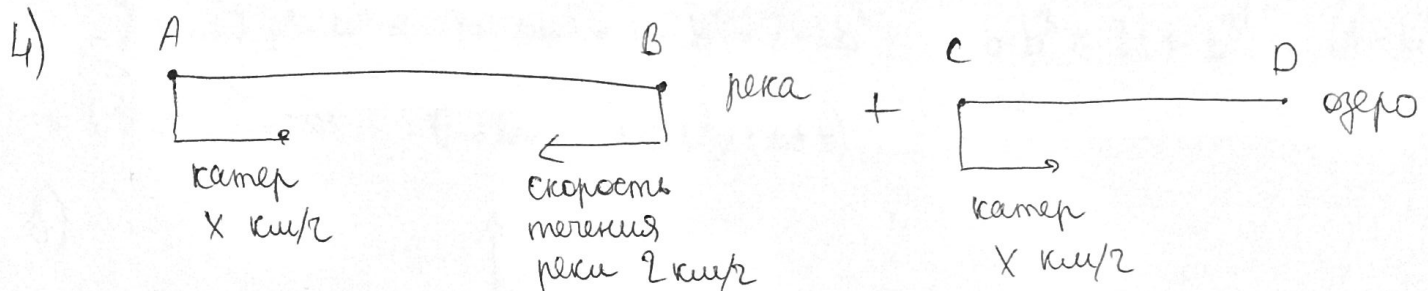 4) A B река + C D озеро
катер
X км/ч
скорость
течения
реки 2 км/ч
катер
X км/ч